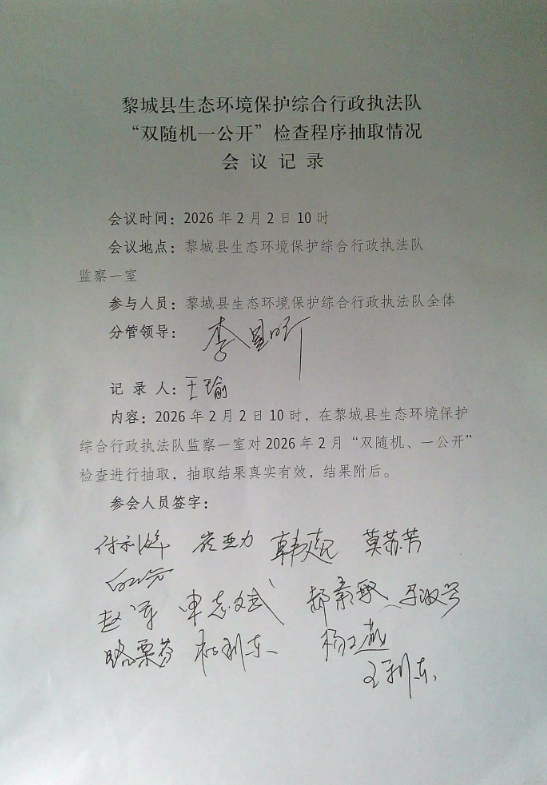 黎城县生态环境保护综合行政执法队
“双随机一公开”检查程序抽取情况
会 议 记 录
会议时间：2026 年 2 月 2 日 10 时
会议地点：黎城县生态环境保护综合行政执法队
监察一室
参与人员：黎城县生态环境保护综合行政执法队全体
分管领导：
记 录 人：王瑜
内容：2026 年 2 月 2 日 10 时，在黎城县生态环境保护
综合行政执法队监察一室对 2026 年 2 月“双随机、一公开”
检查进行抽取，抽取结果真实有效，结果附后。
参会人员签字：
莫苏芳
申志斌 郝素敏
路栗芬 杨利东
王利东